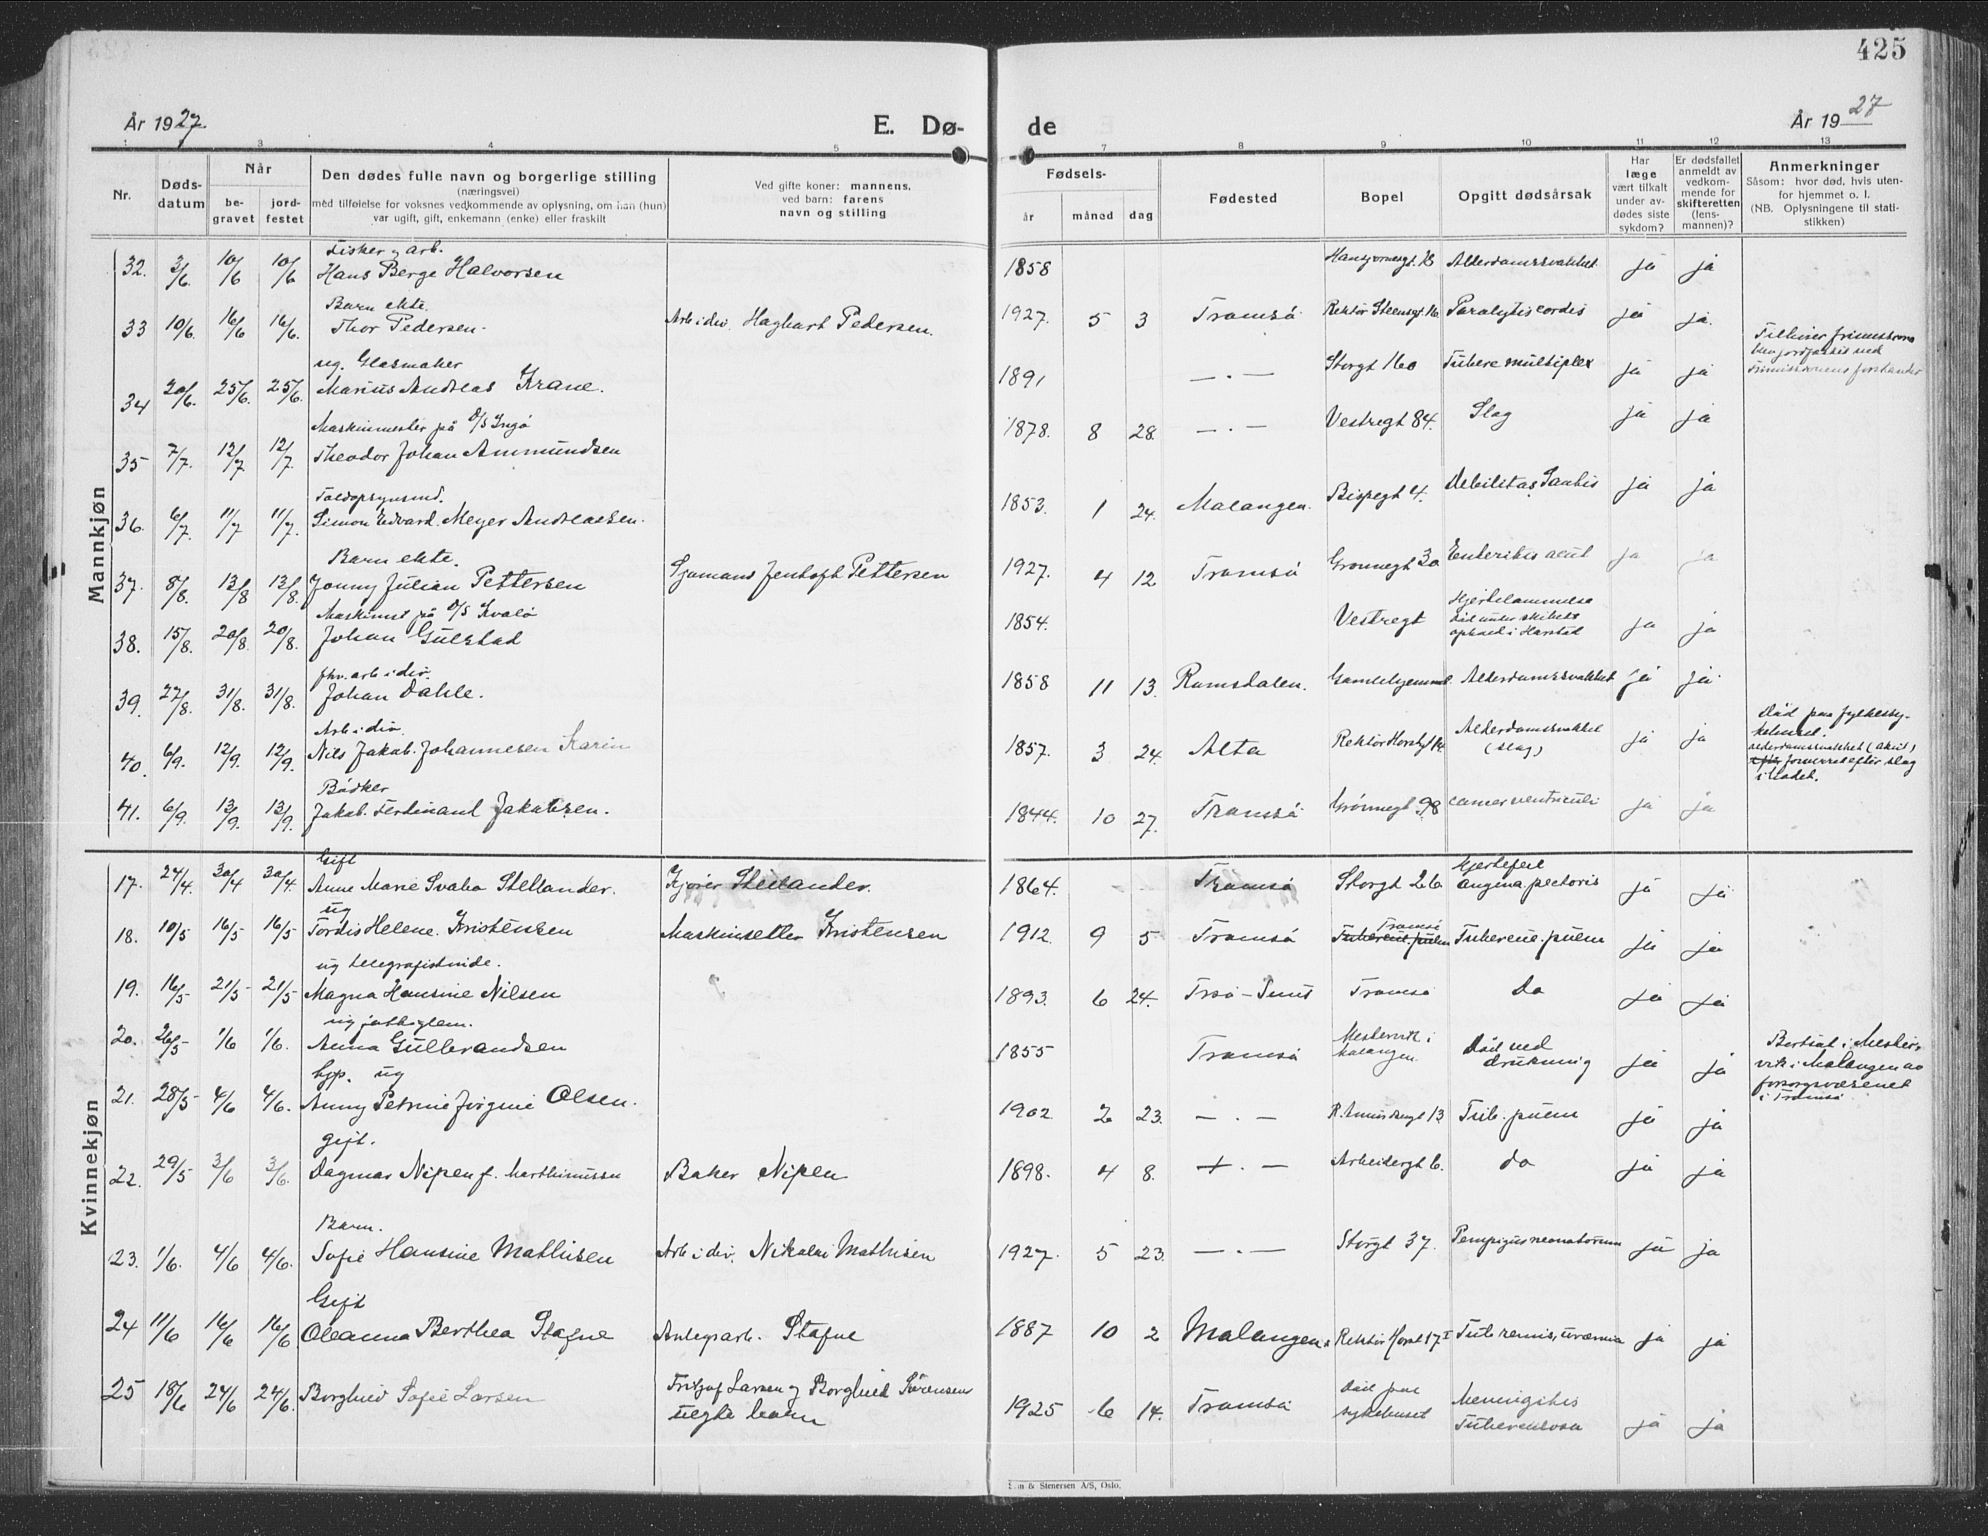 425
År 1927
E. Dø-
de
År 1927
1 3 4 5 7 8 9 10 11 12 13
Nr.
Døds-
datum
Når
be-
gravet
jord-
festet
Den dødes fulle navn og borgerlige stilling
(næringsvei)
med tilføielse for voksnes vedkommende av oplysning, om han (hun)
var ugift, gift, enkemann (enke) eller fraskilt
Ved gifte koner: mannens,
ved barn: farens
navn og stilling
Fødsels-
år måned dag
Fødested
Bopel
Opgitt dødsårsak
Har
læge
vært tilkalt
under av-
dødes siste
sykdom?
Er dødsfallet
anmeldt av
vedkom-
mende for
skifteretten
(lens-
mannen)?
Anmerkninger
Såsom: hvor død, hvis uten-
for hjemmet o. l.
(NB. Oplysningene til stati-
stikken)
Mannkjøn
Fisker og arb.
32. 3/6. 10/6 10/6 Hans Berge Halvorsen 1858 Alderdomssvakhet ja ja
Barn ekte.
33 10/6. 16/6 16/6. Thor Pedersen. Arb i div. Hagbart Pedersen. 1927. 5 3 Tromsø Rektor Steensgt 16 Paralytis cordis ja ja.
ug. Glasmaker
34 20/6. 25/6. 25/6. Marius Andreas Krane. 1891 — . — Storgt 160 Tubere multiplex ja ja
Maskinmester på D/S Ingø
35 7/7. 12/7 12/7. Theodor Johan Ammundsen 1878. 8 28. — . — Vestregt 84. Slag ja ja
Toldopsynsmd.
36. 6/7. 11/7 11/7. Simon Edvard Meyer Andreassen. 1853. 1 24. Malangen. Bispegt 4. Debilitas ja ja
Barn ekte.
37. 8/8. 13/8 13/8. Jonny Julian Pettersen Sjømans Jentoft Pettersen 1927. 4 12 Tromsø Grønnegt 30 Enteritis acut ja ja
Maskinist på D/S Kvalø
38. 15/8. 20/8. 20/8. Johan Gulstad 1854. Vestregt Hjertelammelse
Død under skibets
ophold i Harstad ja ja
fhv. arb i div.
39. 27/8. 31/8. 31/8. Johan Dahle. 1858 11 13. Romsdalen. Gamlehjemmet. Alderdomssvakhet ja ja.
Arb i div.
40. 6/9. 12/9. 12/9. Nils Jakob Johannesen Karin 1857. 3 24. Alta Alderdomssvakhet
(slag) ja ja Død paa fylkessy-
kehuset.
alderdomssvakhet (akut)
efter slag
Bødker
41. 6/9. 13/9. 13/9. Jakob Ferdinand Jakobsen. 1844. 10 27. Tromsø Grønnegt 98 cancer ventriculi ja ja
Kvinnekjøn
Gift
17. 24/4. 30/4 30/4. Anne Marie Svaba Stellander. Kjører Stellander. 1864. Tromsø Storgt 26 Hjertefeil
angina pectoris ja ja
ug
18. 10/5 16/5 16/5 Tordis Helene Kristensen Maskinsetter Kristensen 1912. 9 5 Tromsø Tromsø
Tubercul. pulm Tubercul. pulm ja ja
ug telegrafistinde.
19. 16/5 21/5 21/5 Magna Hansine Nilsen 1893. 6 24. Tromsø Do ja ja
20. 26/5 1/6 1/6. Anna Gulbrandsen 1855 Tromsø Mestervik i
Malangen Død ved
drukning ja ja Bortsat i Mester-
vik i Malangen av
forsorgsvæsenet
i Tromsø
hjp. ug
21. 28/5 4/6 4/6. Anny Petrine Jørgine Olsen. 1902 2 23. — . — R. Amundsengt 13 Tub. pulm ja ja
gift.
22. 29/5 3/6 3/6. Dagmar Nipen f. Marthinussen Baker Nipen 1898. 4 8. — . — Arbeidergt 6. do ja ja
Barn.
23. 1/6. 4/6 4/6. Sofie Hansine Mathisen Arb i div. Nikolai Mathisen 1927. 5 23. — . — Storgt 37. Pempigus neonatorum ja ja
Gift
24 11/6 16/6 16/6 Oleanna Berthea Stafne Anlegsarb. Stafne 1887 10 2 Malangen Tub renis, uræmia ja ja
25 18/6 24/6 24/6. Borghild Sofie Larsen Fritjof Larsen og Borghild Sørensens
uegte barn 1925 6 14. Tromsø Død paa
sykehuset Meningitis
Tuberculosa ja ja
& Stenersen A/S, Oslo.